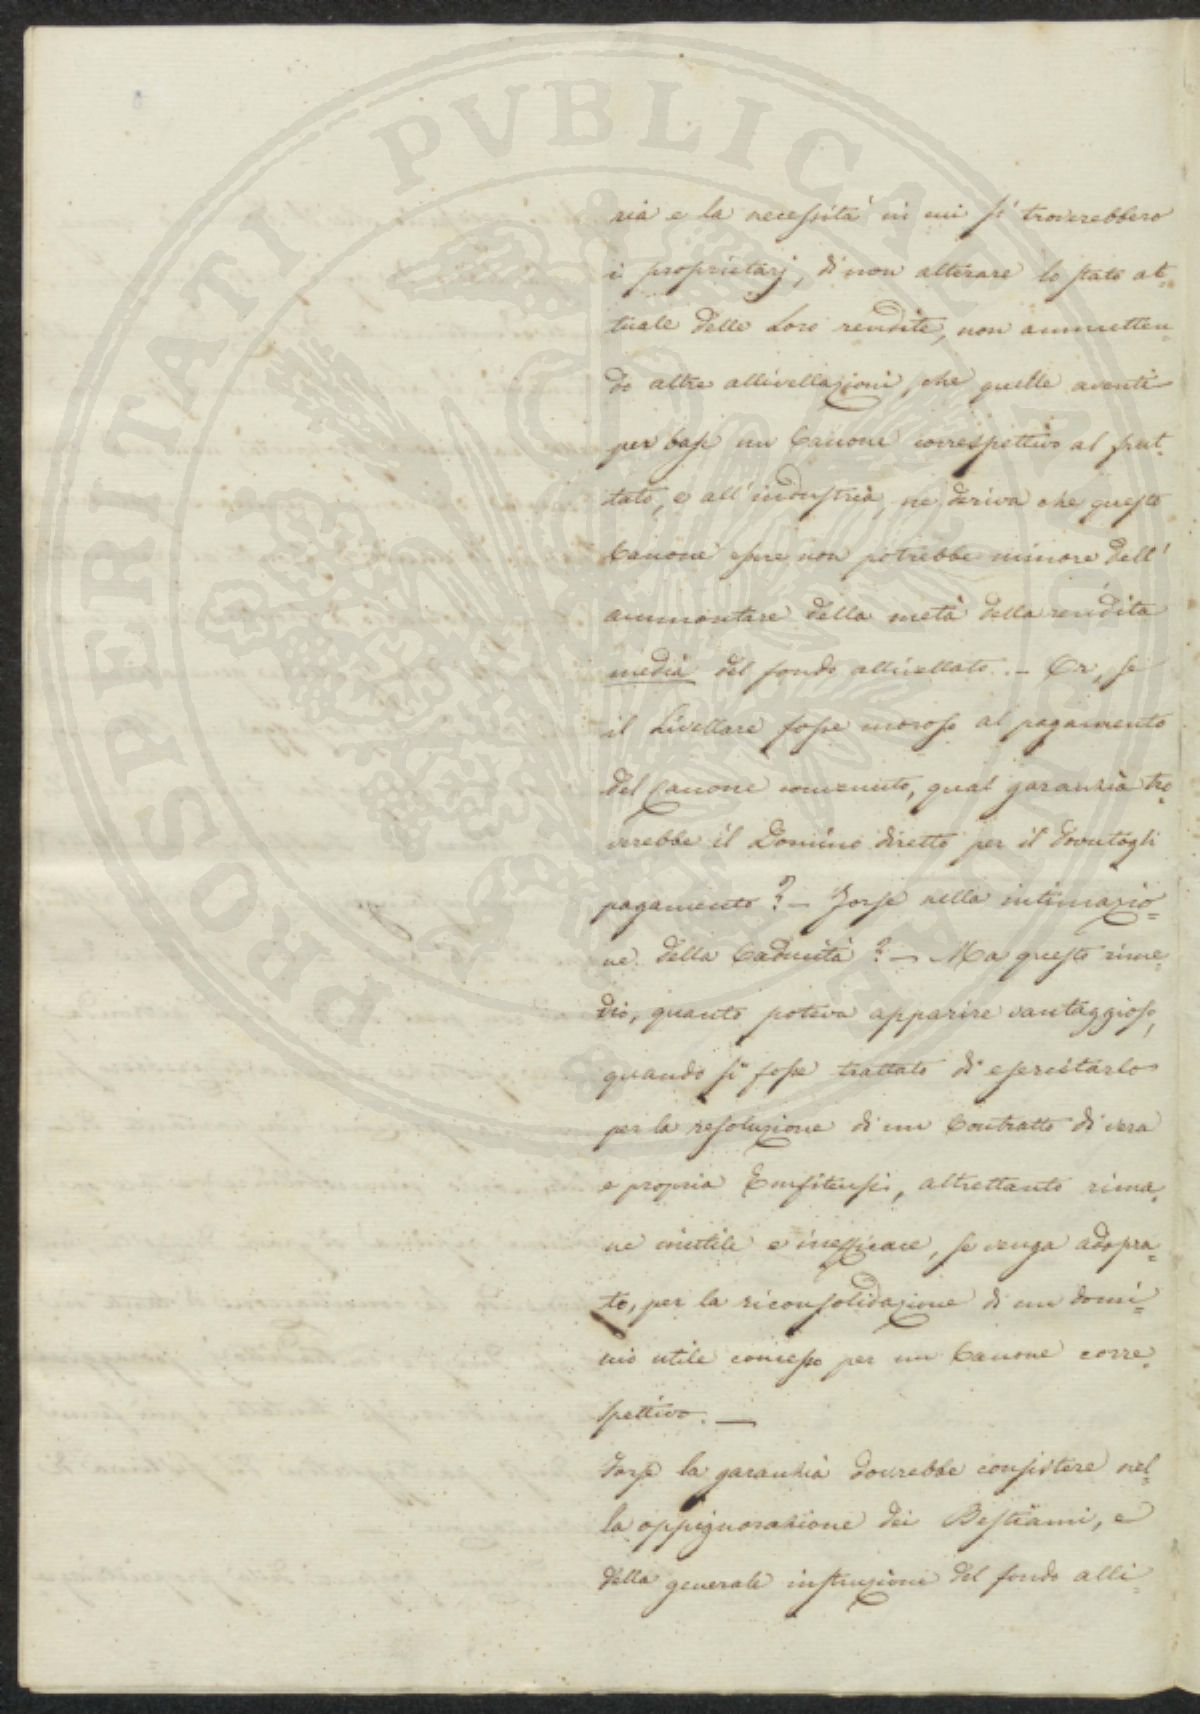 ria e la necessità in cui si troverebbero
i proprietarj, di non alterare lo stato at=
tuale delle Loro rendite, non ammetten=
do altre allivellazioni, che quelle aventi
per base un Canone correspettivo al frut=
tato, e all'industria, ne deriva che questo
Canone essere non potrebbe minore dell'
ammontare della metà della rendita
media del fondo allivellato. – Or, se
il Livellare fosse moroso al pagamento
del Canone convenuto, qual garanzia tro=
verebbe il Domino diretto per il dovutogli
pagamento? – Forse nella intimazio=
ne della Caducità? – Ma questo rime=
dio, quanto poteva apparire vantaggioso,
quando si fosse trattato di esercitarlo
per la resoluzione di un Contratto di vera
e propria Emfiteusi, altrettanto rima=
ne inutile e inefficace, se venga adopra=
to, per la riconsolidazione di un domi=
nio utile concesso per un Canone corre=
spettivo. —
Forse la garanzia dovrebbe consistere nel=
la oppignorazione dei Bestiami, e
della generale instruzione del fondo alli=
PROSPERITATI PVBLICAE AVGENDAE